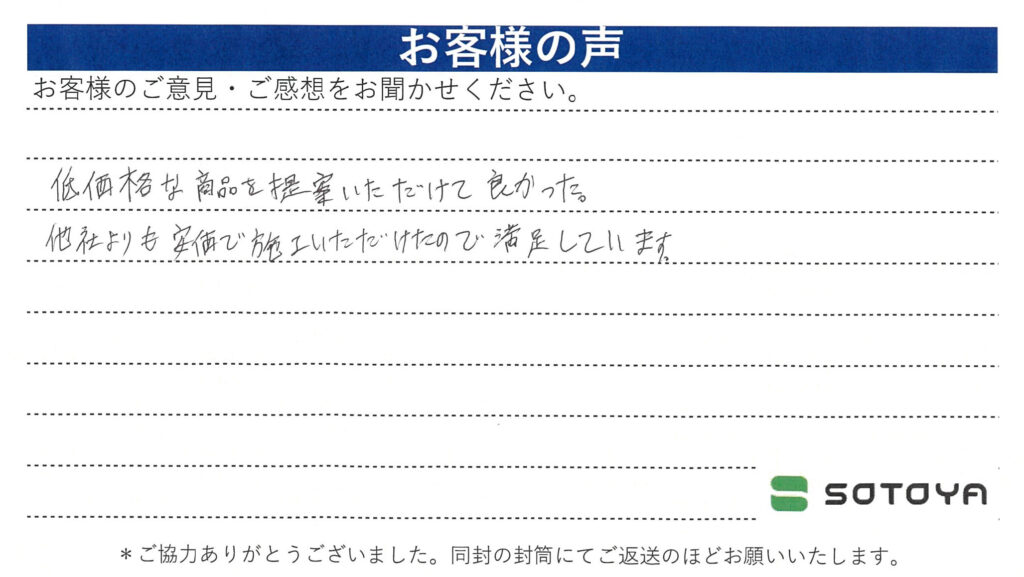 お客様の声
お客様のご意見・ご感想をお聞かせください。
低価格な商品を提案いただけて良かった。
他社よりも安価で施工いただけたので満足しています。
SOTOYA
＊ご協力ありがとうございました。同封の封筒にてご返送のほどお願いいたします。